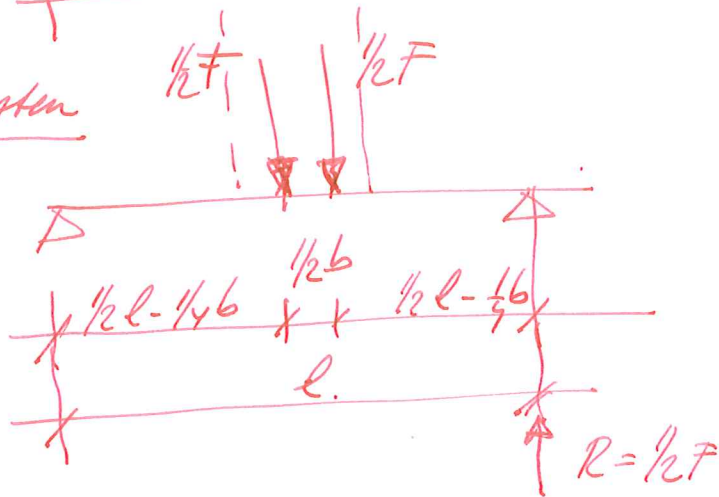 ½F ½F
½b
½l-¼b ½l-¼b
l.
R=½F